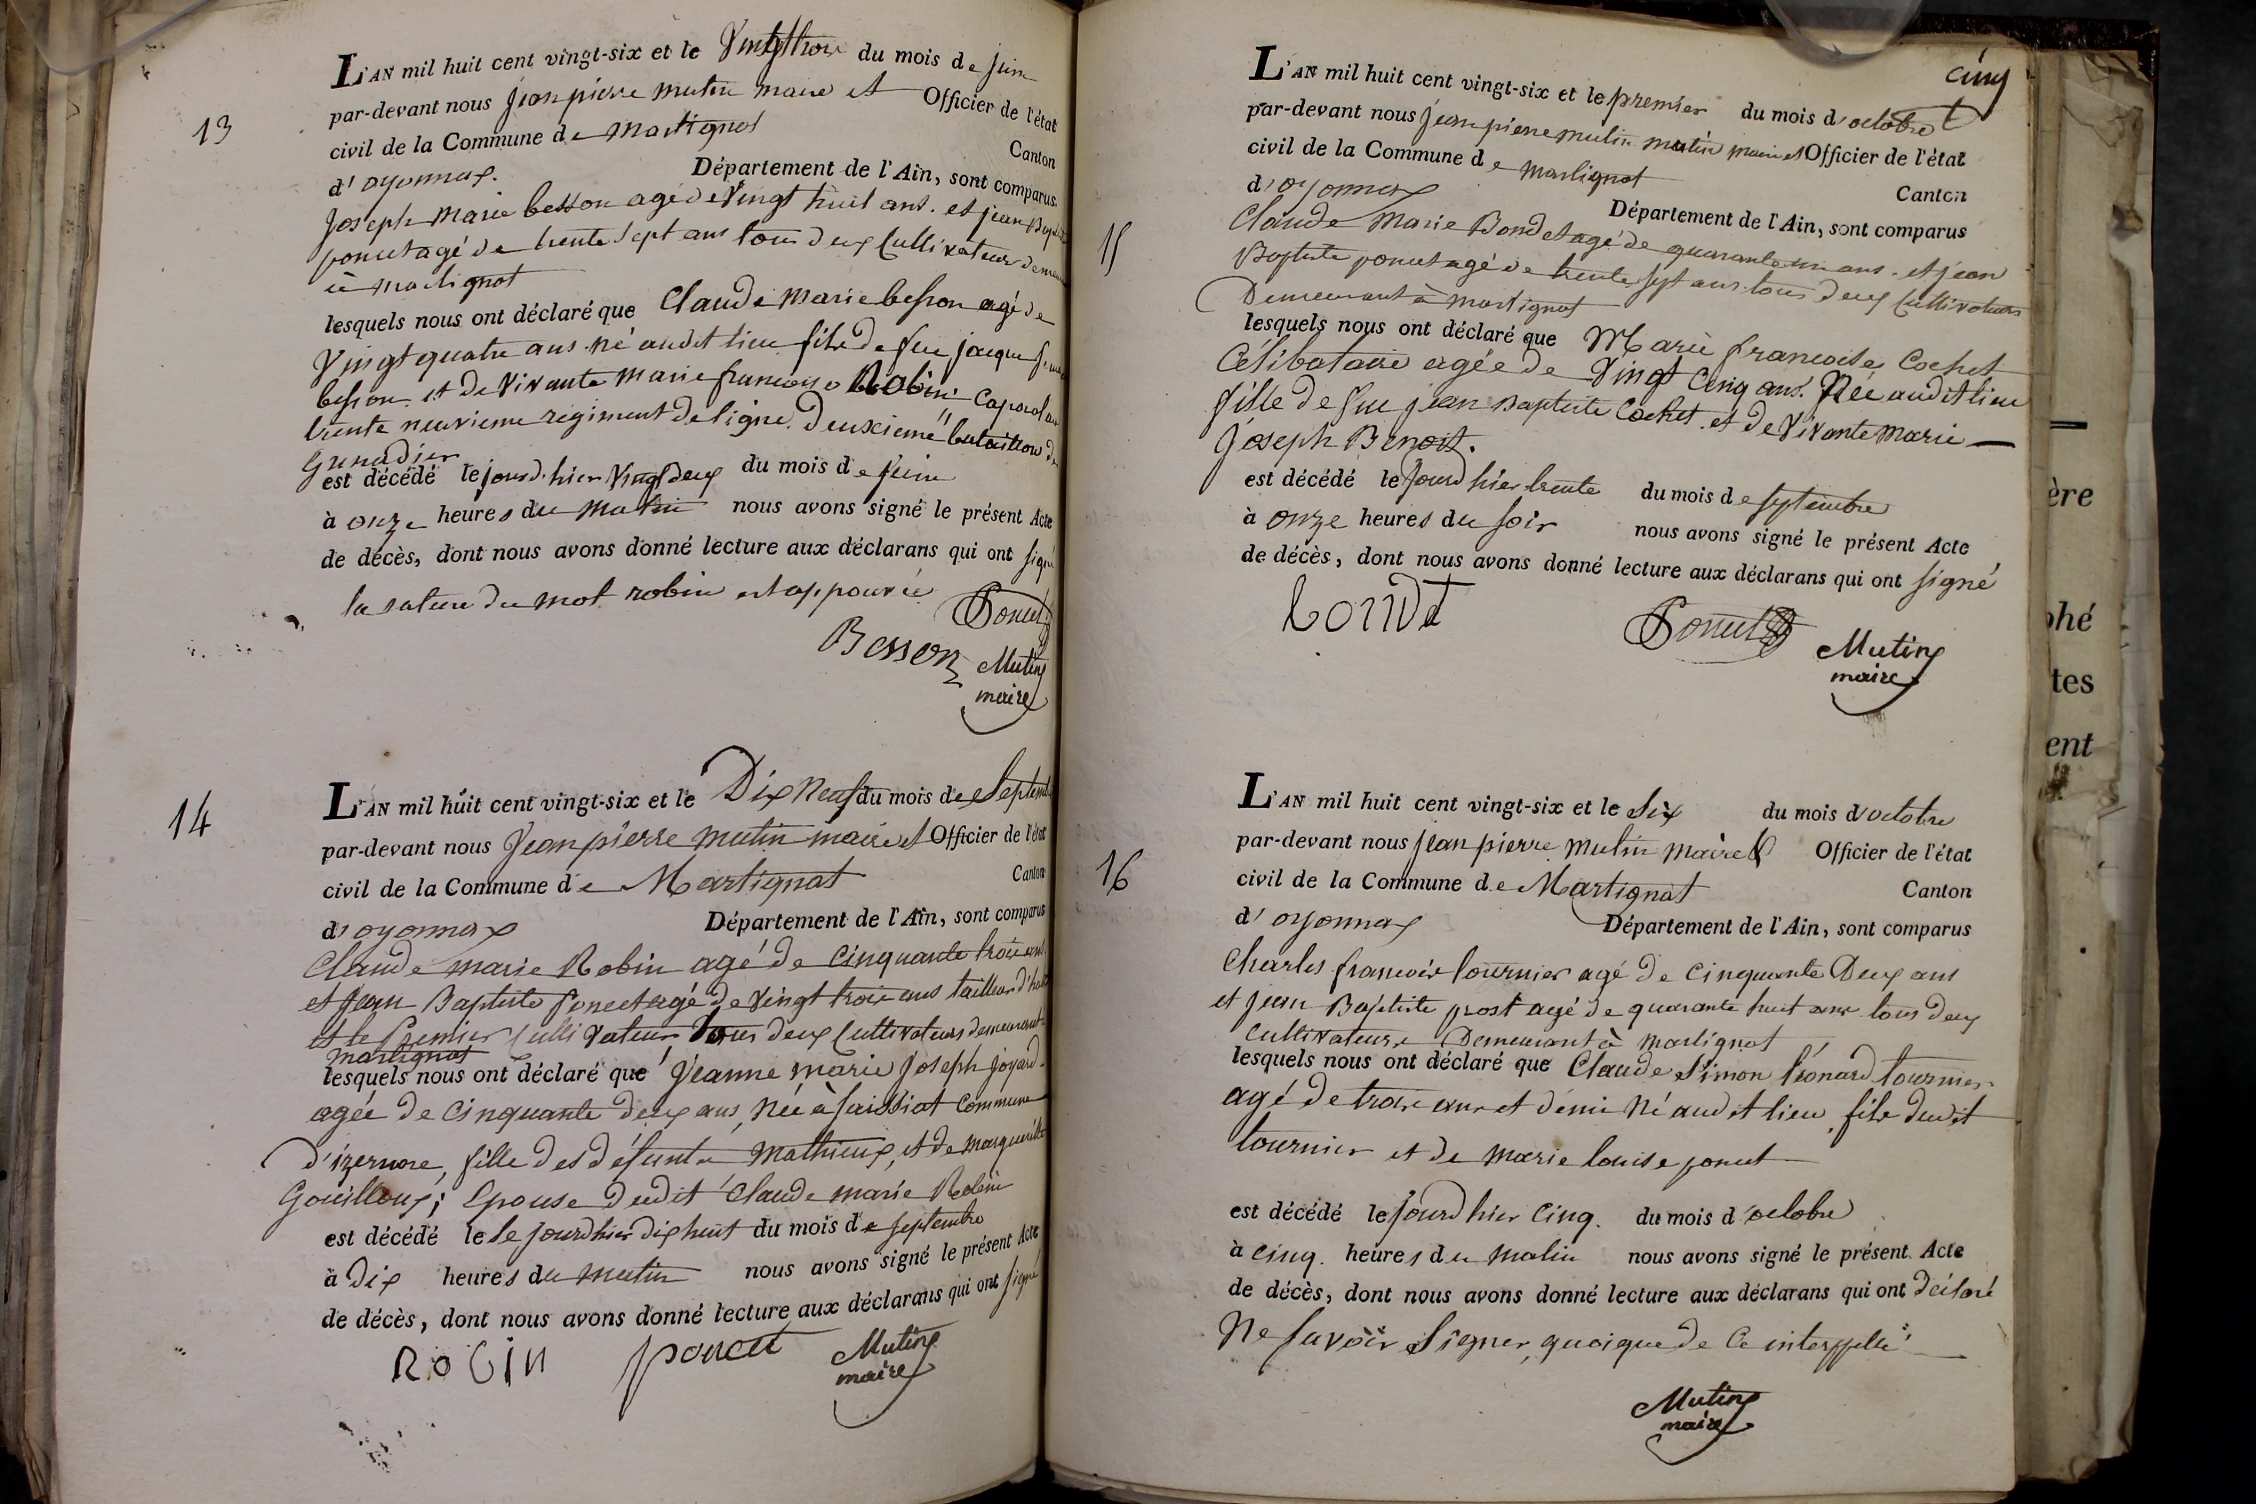 13
L'AN mil huit cent vingt-six et le Vingt trois du mois de juin
par-devant nous jean pierre mutin maire et Officier de l'état
civil de la Commune de martignat Canton
d'oyonnax. Département de l'Ain, sont comparus
Joseph Marie besson agé de Vingt huit ans. et jean Baptiste
poncet agé de trente sept ans tous deux Cultivateurs
à martignat
lesquels nous ont déclaré que Claude Marie besson agé de
Vingt quatre ans né audit lieu fils de feu jacque
besson et de Vivante Marie francoise Robin. Caporal au
trente neuvieme regiment de ligne. Deuxieme bataillon de
Grenadier
est décédé le jourd'hier Vingt deux du mois de juin
à onze heures du matin nous avons signé le présent Acte
de décès, dont nous avons donné lecture aux déclarans qui ont signé
la rature du mot robin est appouvée
Poncet
Besson
Mutin
maire
14
L'AN mil huit cent vingt-six et le Dix Neuf du mois de Septembre
par-devant nous Jean pierre mutin maire et Officier de l'état
civil de la Commune de Martignat Canton
d'oyonnax Département de l'Ain, sont comparus
Claude marie Robin agé de Cinquante trois ans
et Jean Baptiste poncet agé de vingt trois ans tailleur d'habit
et le Premier Cultivateur tous deux Cultivateurs demeurant
Martignat
lesquels nous ont déclaré que Jeanne Marie Joseph joyard
agée de Cinquante deux ans, Née à saissiat Commune
D'izernore, fille des défunts Mathieux, et de Marguerite
Gouilloux; Epouse dudit Claude marie Robin
est décédé le le jourdhier dix huit du mois de septembre
à Dix heures du matin nous avons signé le présent Acte
de décès, dont nous avons donné lecture aux déclarans qui ont signé
RobiN poncet Mutin
maire
cinq
15
L'AN mil huit cent vingt-six et le premier du mois d'octobre
par-devant nous jean pierre mutin mutin maire et Officier de l'état
civil de la Commune de martignat Canton
d'oyonnax Département de l'Ain, sont comparus
Claude Marie Bondet agé de quarante un ans. et jean
Baptiste poncet agé de trente sept ans tous deux Cultivateurs
Demeurant à martignat
lesquels nous ont déclaré que Marie francoise Cochet
Célibataire agée de Vingt Cinq ans. Née audit lieu
fille de feu jean Baptiste Cochet. et de Vivante Marie
Joseph Benoit.
est décédé le jourd hier trente du mois de septembre
à onze heures du soir nous avons signé le présent Acte
de décès, dont nous avons donné lecture aux déclarans qui ont signé
Poncet
Mutin
maire
16
L'AN mil huit cent vingt-six et le Six du mois d'octobre
par-devant nous jean pierre mutin maire et Officier de l'état
civil de la Commune de Martignat Canton
d'oyonnax Département de l'Ain, sont comparus
Charles francois tournier agé de Cinquante Deux ans
et jean Baptiste prost agé de quarante huit ans tous deux
Cultivateurs Demeurant à martignat
lesquels nous ont déclaré que Claude Simon léonard tournier
agé de trois ans et demi Né audit lieu, fils dudit
tournier et de marie louise poncet
est décédé le jourd hier Cinq. du mois d'octobre
à Cinq. heures du matin nous avons signé le présent Acte
de décès, dont nous avons donné lecture aux déclarans qui ont déclaré
Ne savoir Signer, quoique de Ce interppellé
Mutin
maire
ère
phé
tes
ent